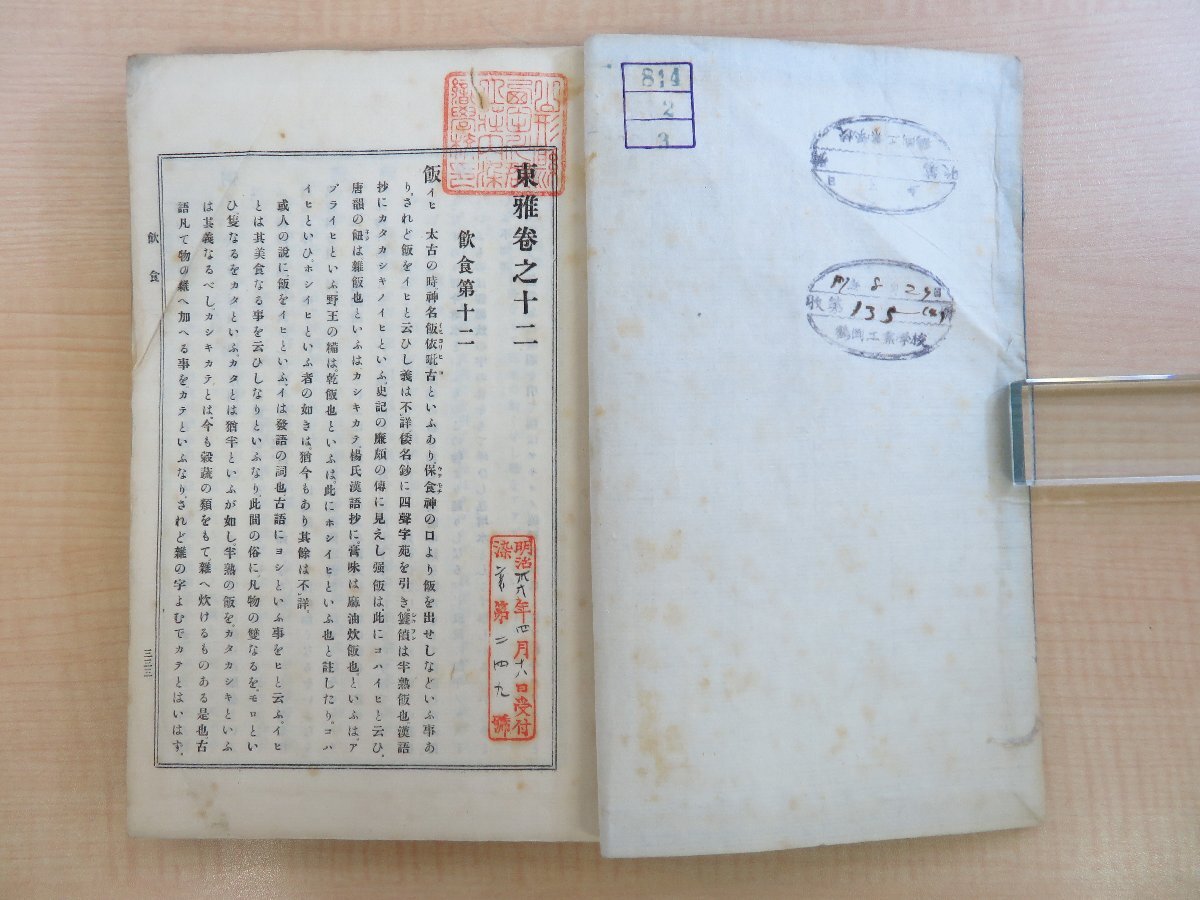 814
2
3
鶴岡工業学校
収第
日
17年8月29日
収第135
鶴岡工業学校
東雅卷之十二
飲食第十二
飯イヒ 太古の時、神名飯依毗古といふあり、保食神の口より飯を出せしなどいふ事あ
り、されど飯をイヒと云ひし義は不詳、倭名鈔に四聲字苑を引き、饙は半熟飯也、漢語
抄にカタカシキノイヒといふ、史記の廉頗の傳に見えし强飯は、此にコハイヒと云ひ、
唐韻の飷は雜飯也といふはカシキカテ、楊氏漢語抄に、䬯味は麻油炊飯也、といふは、ア
ブライヒといふ、野王の糒は、乾飯也といふは、此にホシイヒといふ也と註したり、コハ
イヒといひ、ホシイヒといふ者の如きは、猶今もあり、其餘は不詳、
或人の說に、飯をイヒといふ、イは發語の詞也、古語にヨシといふ事をヒと云ふ、イヒ
とは其美食なる事を云ひしなりといふなり、此間の俗に、凡物の雙なるを、モロとい
ひ隻なるをカタといふ、カタとは猶半といふが如し、半熟の飯を、カタカシキといふ
は其義なるべし、カシキカテとは、今も穀蔬の類をもて雜へ炊けるものある是也、古
語凡て物の雜へ加へる事を、カテといふなり、されど雜の字よむでカテとはいはず、
飲食
三三三
明治卅六年四月十八日受付
染 第二四九號